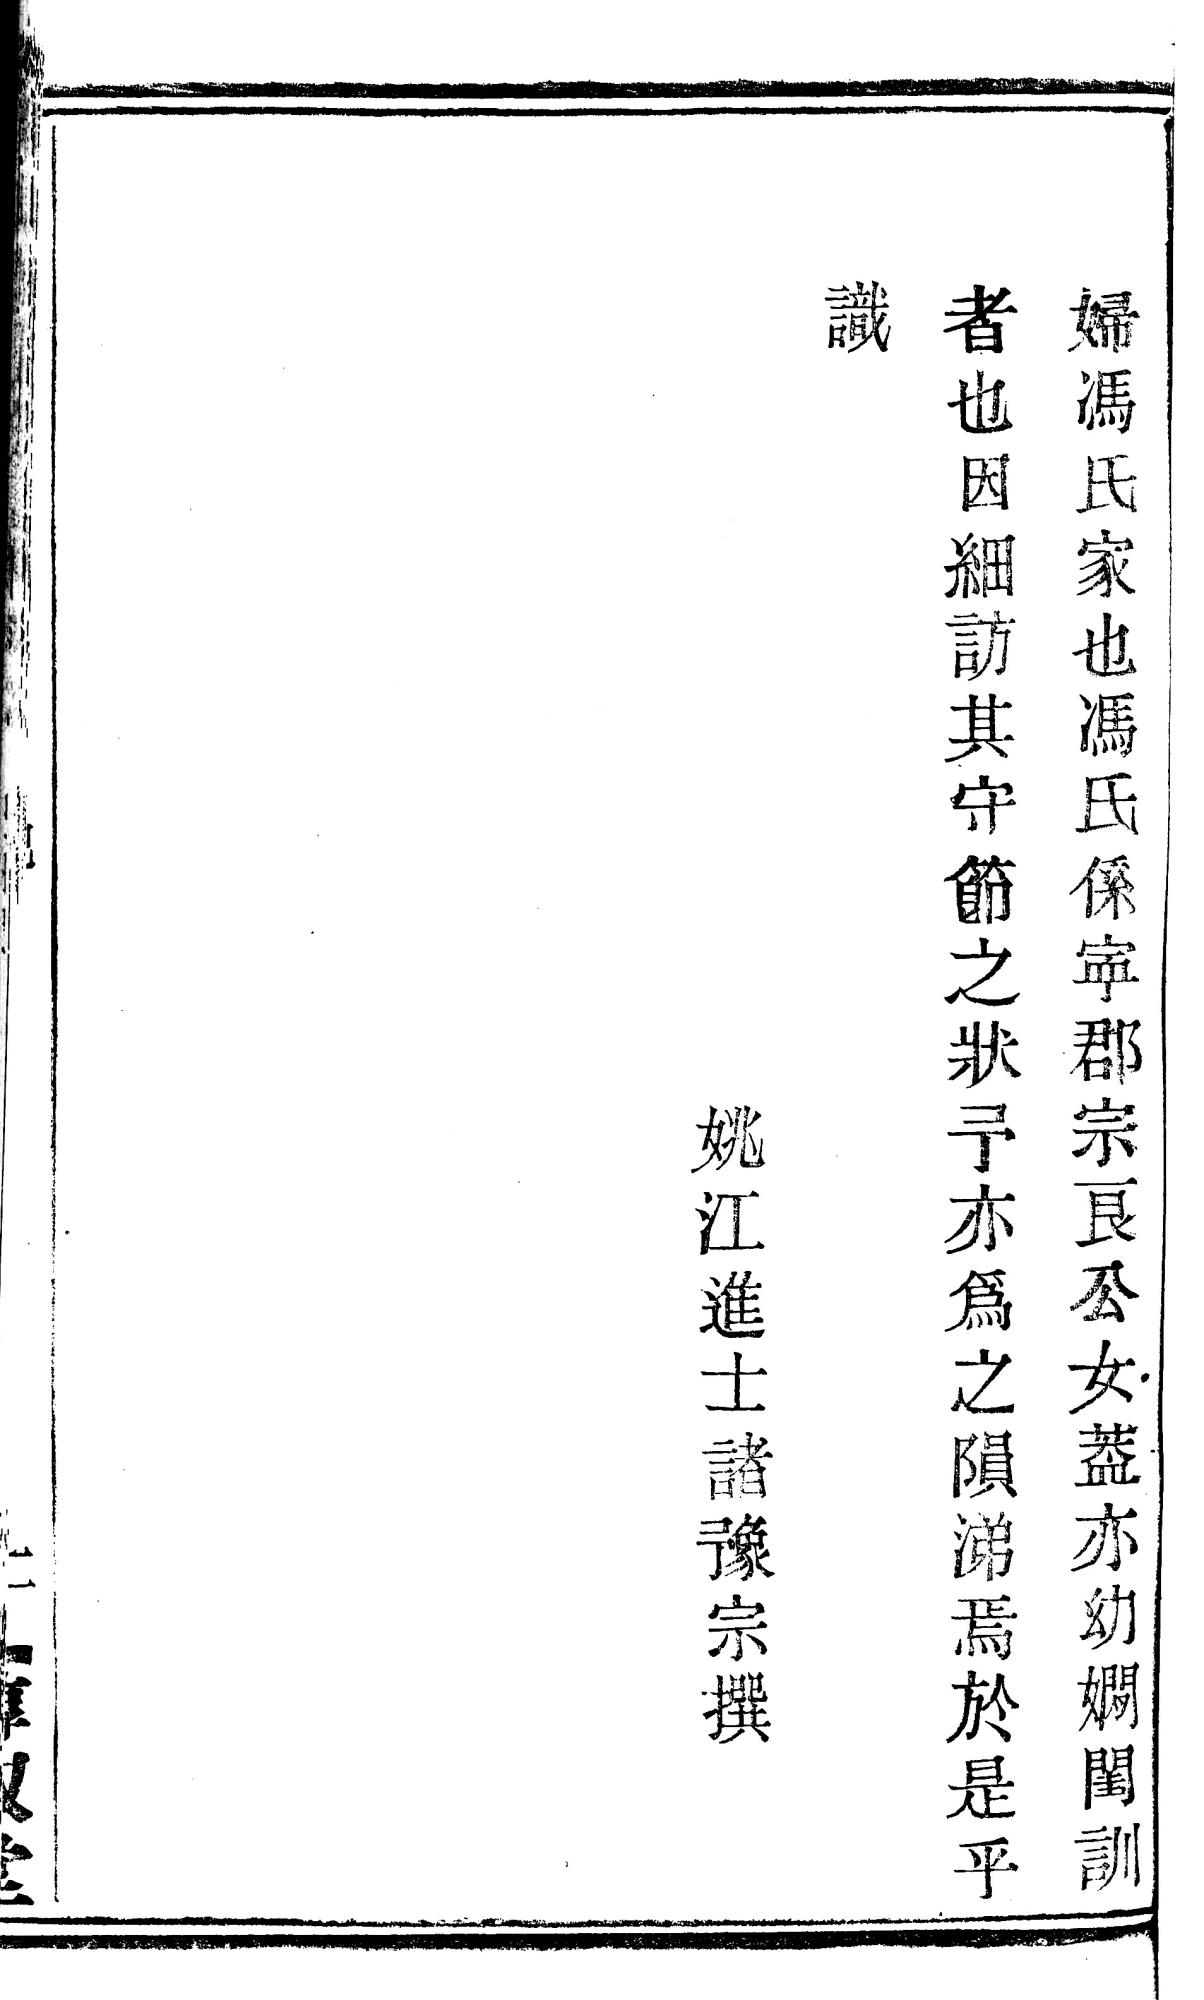 婦馮氏家也馮氏係寕郡宗良公女葢亦幼嫻閨訓
者也因細訪其守節之狀予亦爲之隕涕焉於是乎
識
姚江進士諸豫宗撰